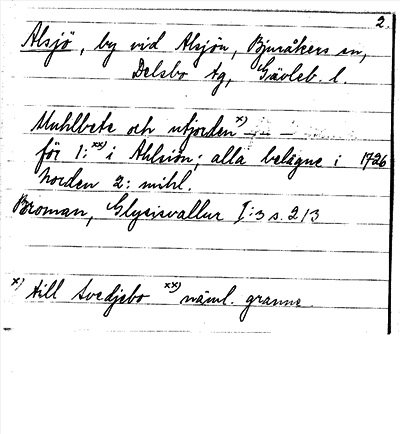 2.
Alsjö, by vid Alsjön, Bjuråkers sn,
Delsbo tg, Gävleb. l.
Muhlbete och utjorden x)
för 1: xx) i Ahlsiön; alla belägne i 1726
Norden 2: mihl.
Broman, Glysisvallur I:3 s. 213
x) till Svedjebo xx) näml. granne